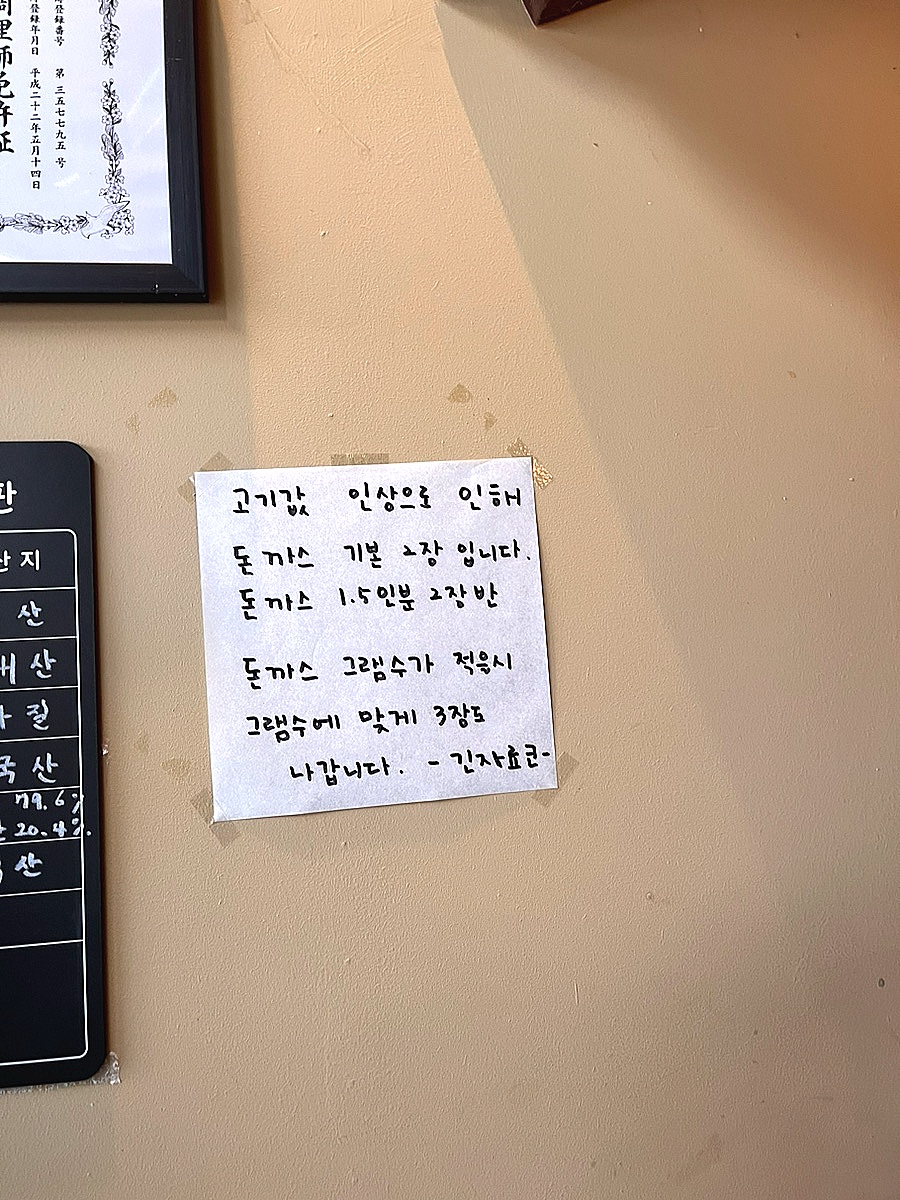 登録番号 第三五七七九五号
登録年月日 平成二十二年五月十四日
理師免許証
고기값 인상으로 인해
돈까스 기본 2장 입니다.
돈까스 1.5인분 2장반
돈까스 그램수가 적을시
그램수에 맞게 3장도
나갑니다. - 긴자료코-
판
산지
산
산
질
국산
79.6%
20.4%.
산